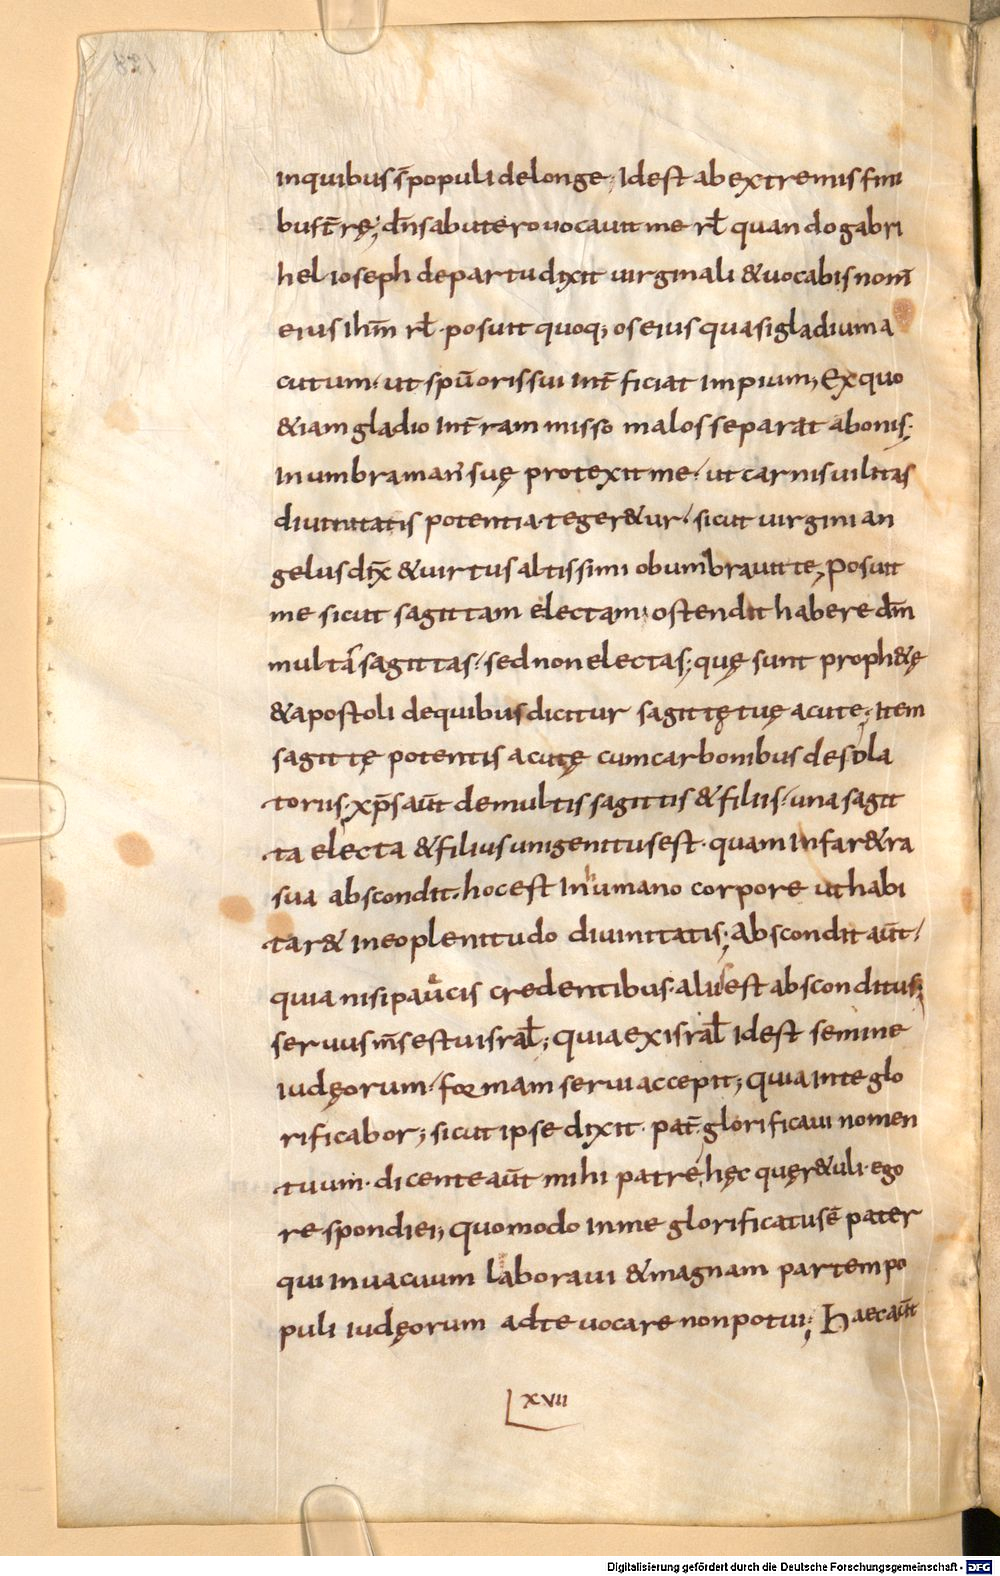 inquibus s̄ populi delonge; Idest ab extremis fini
bus t̄rę; dn̄s abutero uocauit me rł quando gabri
hel ioseph departu dixit uirginali &uocabis nom̄
eius ihm̄ rł. posuit quoq; os eius quasi gladium a
cutum. ut spū oris sui int̄ficiat impium; Ex quo
&iam gladio int̄ram misso malos separat abonis;
In umbra man suę protexit me. ut carnis uilitas
diuinitatis potentia teger&ur. sicut uirgini an
gelus dix̄ &uirtus altissimi obumbrauit te; Posuit
me sicut sagittam electam. ostendit habere dm̄
multas sagittas. sed non electas; quę sunt proph&ę
&apostoli dequibus dicitur sagittę tuę acute; Item
sagittę potentis acutę cum carbonibus desola
toriis; xp̄s aūt demultis sagittis &filiis. una sagit
ta electa &filius unigenitus est. quam infar&ra
sua abscondit. hoc est in humano corpore ut habi
tar& ineo plenitudo diuinitatis; Abscondit aūt.
quia nisi paucis credentibus. aliis est absconditus;
seruus m̄s es tu israł; Quia ex israł idest semine
iudęorum. formam serui accepit; Quia inte glo
rificabor; sicut ipse dixit. pat̄ glorificaui nomen
tuum. dicente aūt mihi patre hęc quęr&uli. ego
respondi ei; Quomodo inme glorificatus ē pater
qui inuacuum laboraui &magnam partem po
puli iudęorum adte uocare non potui; Haec aūt
XVII
Digitalisierung gefördert durch die Deutsche Forschungsgemeinschaft - DFG